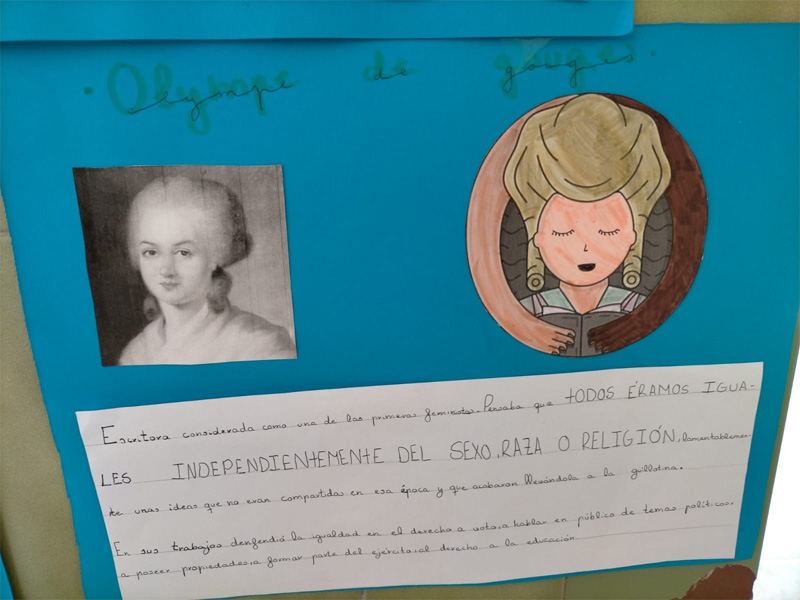 · Olympe de gouges.
Escritora considerada como una de las primeras feministas. Pensaba que TODOS ÉRAMOS IGUA-
LES INDEPENDIENTEMENTE DEL SEXO, RAZA O RELIGIÓN, lamentablemen-
te unas ideas que no eran compartidas en esa época y que acabaron llevándola a la guillotina.
En sus trabajos denfendió la igualdad en el derecho a voto, a hablar en público de temas políticos,
a poseer propiedades, a formar parte del ejército, al derecho a la educación